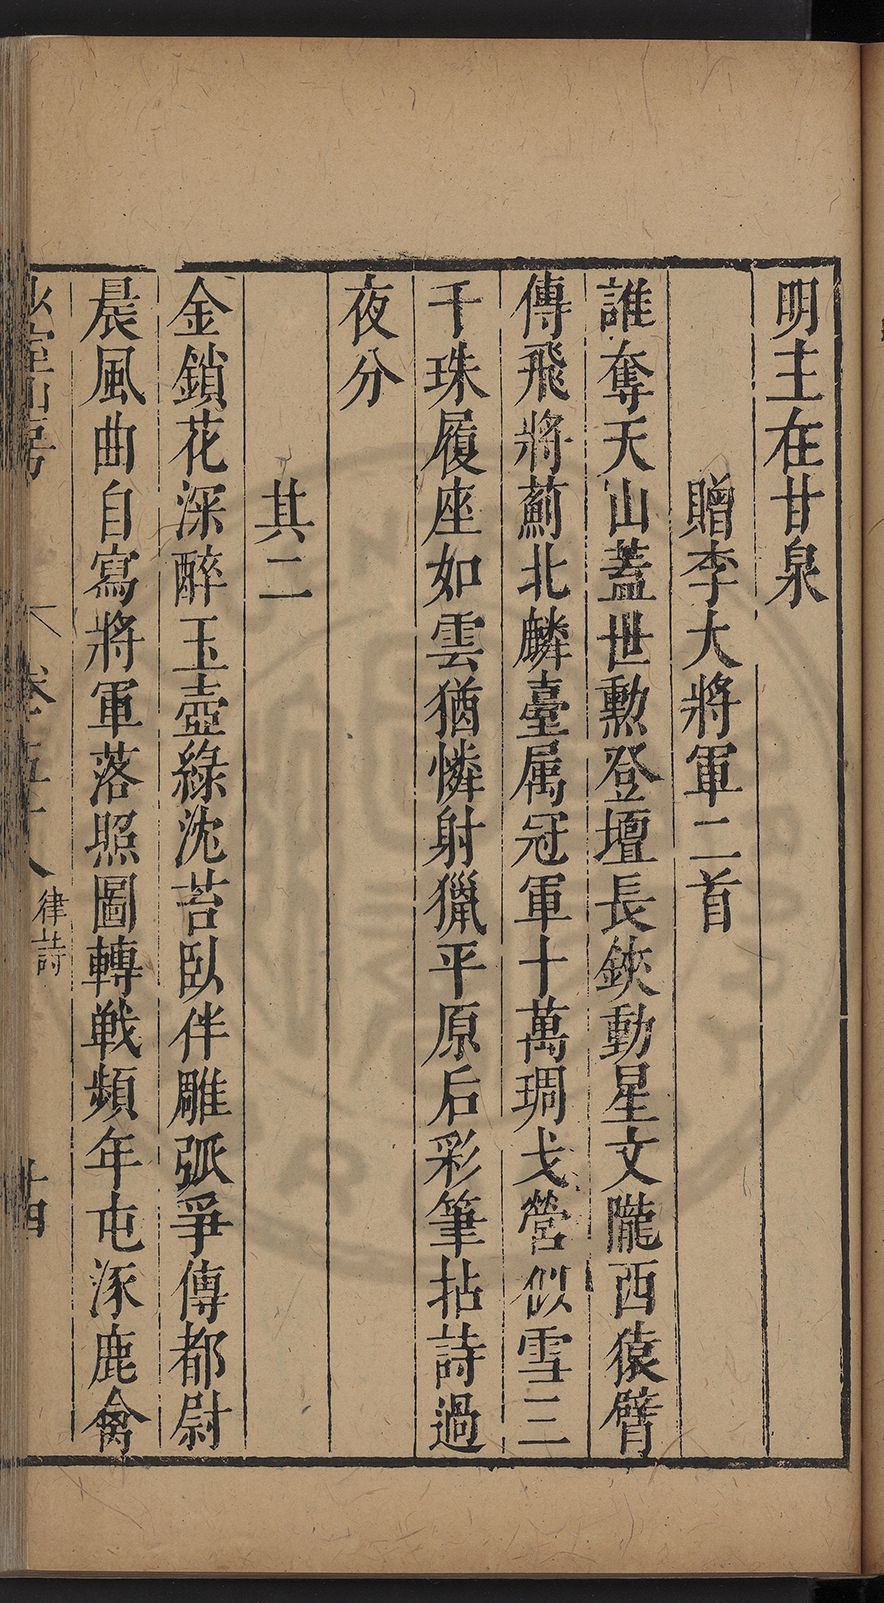 明主在甘泉
贈李大將軍二首
誰奪天山蓋世勲登壇長鋏動星文隴西猿臂
傳飛將薊北麟臺属冠軍十萬琱戈營似雪三
千珠履座如雲猶憐射獵平原后彩筆拈詩過
夜分
其二
金鎖花深醉玉壺綠沈苔臥伴雕弧爭傳都尉
晨風曲自寫將軍落照圖轉戦頻年屯涿鹿禽
室山房 卷五十八 律詩 廿四